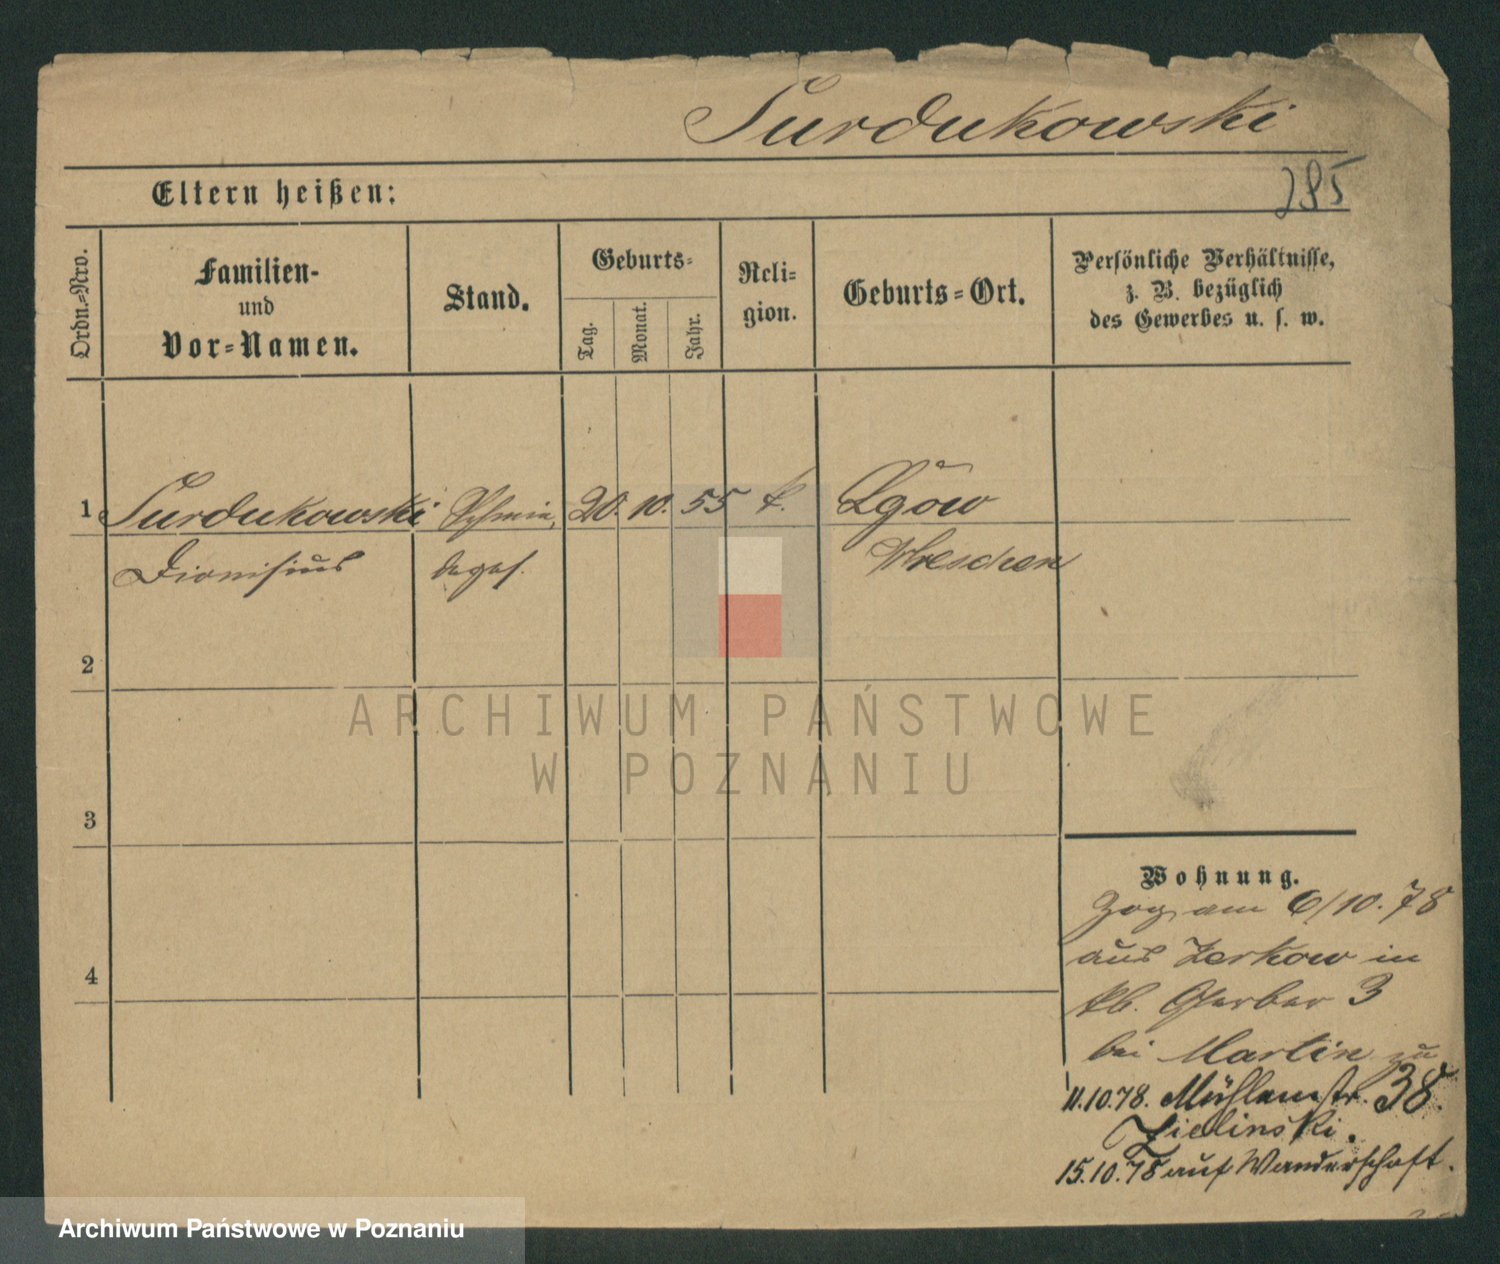 Surdukowski
285
Eltern heißen:
Ordn.-Nro.
Familien-
und
Vor-Namen.
Stand.
Geburts-
Tag.
Monat.
Jahr.
Reli-
gion.
Geburts-Ort.
Persönliche Verhältnisse,
z. B. bezüglich
des Gewerbes u. s. w.
1 Surdukowski Schmie, 20. 10. 55 k. Lgów
Dionisius deges. Wreschen
2
3
4
ARCHIWUM PAŃSTWOWE
W POZNANIU
Wohnung.
Zog am 6/10.78
aus Zerkow in
kl. Gerber 3
bei Martin zu
11.10.78. Mühlenstr. 38.
Zielinski.
15.10.78 auf Wanderschaft.
Archiwum Państwowe w Poznaniu